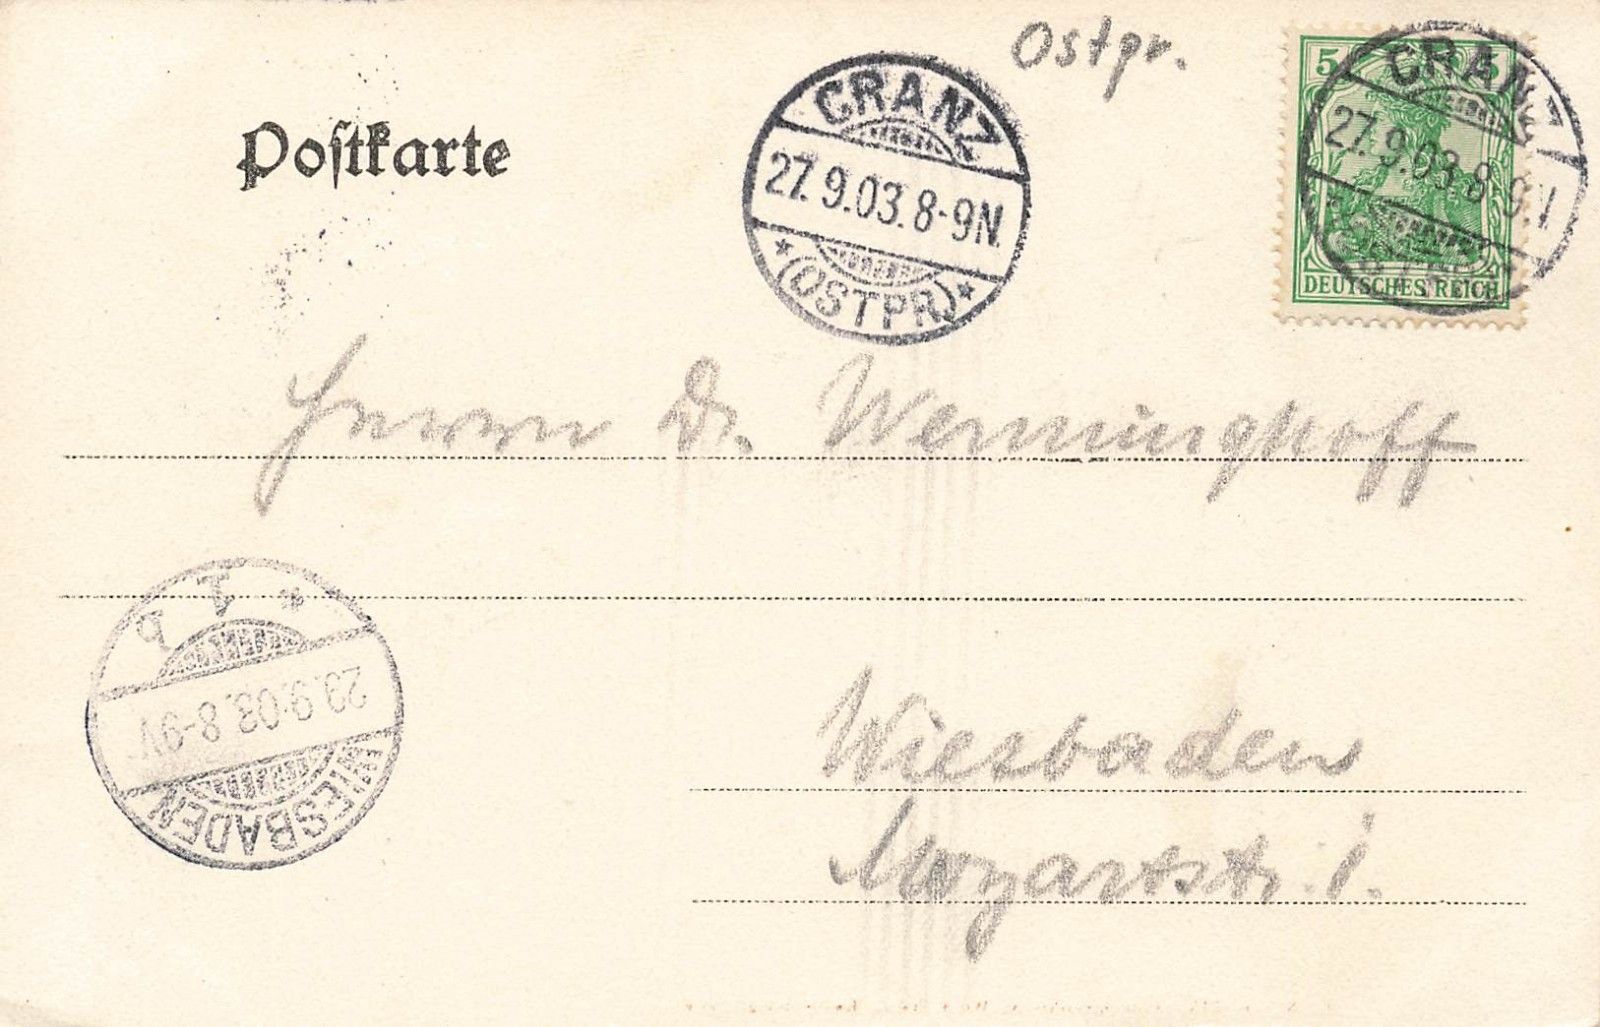 Ostpr.
Postkarte
CRANZ
27.9.03.8-9N.
*(OSTPR)*
5 5
CRANZ
27.9.03.8-9
DEUTSCHES REICH
Herrn Dr. Werminghoff
* 1 b
29.9.03.8-9V
WIESBADEN
Wiesbaden
Mozartstr. 1.